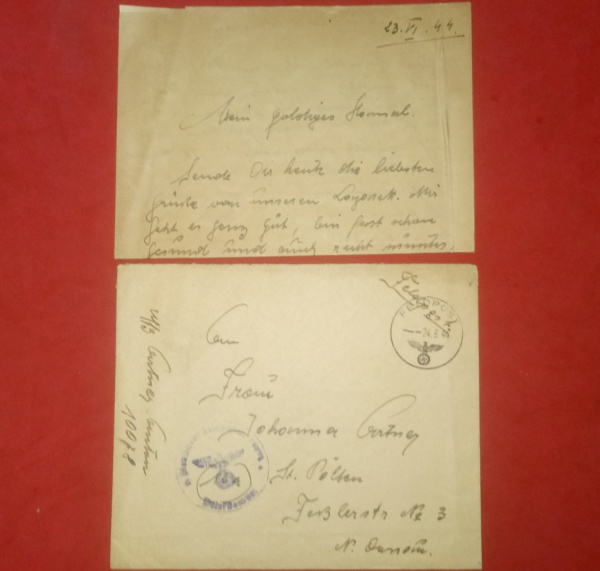 23.VI.44.
Mein goldiges Hannerl.
Sende Dir heute die liebsten
Grüße von unseren Lazarett. Mir
geht es ganz gut, bin fast schon
gesund und auch recht
Feldpost
FELDPOST
An
Frau
Johanna
St. Pölten
Nr 3
N. Donau.
Uffz Anton
10078